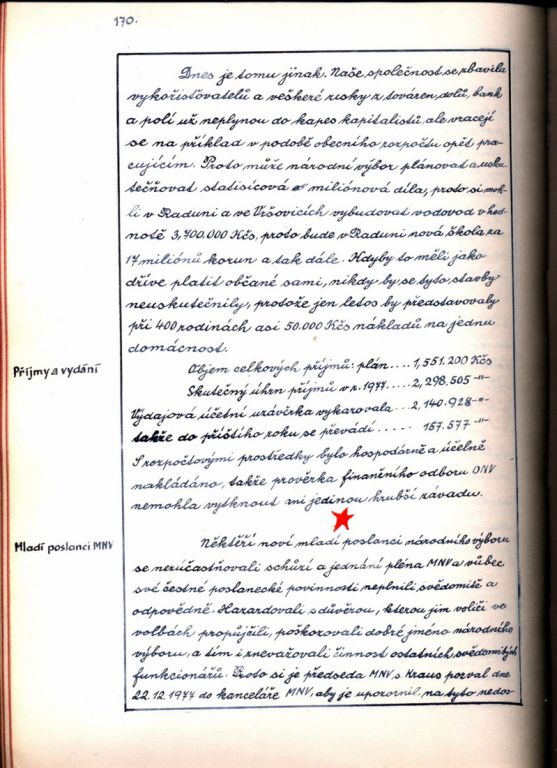 170.
Dnes je tomu jinak. Naše společnost se zbavila
vykořisťovatelů a veškeré zisky z továren, dolů, bank
a polí už neplynou do kapes kapitalistů, ale vracejí
se na příklad v podobě obecního rozpočtu opět pra-
cujícím. Proto může národní výbor plánovat a usku-
tečňovat statisícová miliónová díla, proto si moh-
li v Raduni a ve Vršovicích vybudovat vodovod v hod-
notě 3,700.000 Kčs, proto bude v Raduni nová škola za
17 miliónů korun a tak dále. Kdyby to měli jako
dříve platit občané sami, nikdy by se tyto stavby
neuskutečnily, protože jen letos by představovaly
při 400 rodinách asi 50.000 Kčs nákladů na jednu
domácnost.
Příjmy a vydání
Objem celkových příjmů: plán .... 1,551.200 Kčs
Skutečný úhrn příjmů v r. 1977 .... 2,298.505 -"-
Výdajová účetní uzávěrka vykazovala ... 2,140.928 -"-
takže do příštího roku se převádí ..... 157.577 -"-
S rozpočtovými prostředky bylo hospodárně a účelně
nakládáno, takže prověrka finančního odboru ONV
nemohla vytknout ani jedinou hrubší závadu.
Mladí poslanci MNV
Někteří noví mladí poslanci národního výboru
se nezúčastňovali schůzí a jednání pléna MNV a vůbec
své čestné poslanecké povinnosti neplnili svědomitě a
odpovědně. Hazardovali s důvěrou, kterou jim voliči ve
volbách propůjčili, poškozovali dobré jméno národního
výboru, a tím i znevažovali činnost ostatních, svědomitých
funkcionářů. Proto si je předseda MNV s. Kraus pozval dne
22.12.1977 do kanceláře MNV, aby je upozornil na tyto nedos-